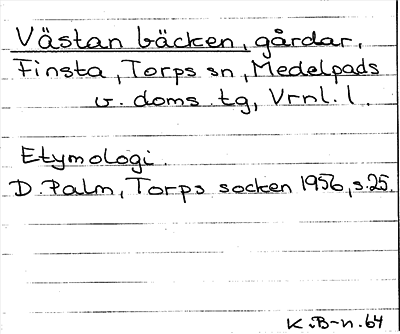 Västanbäcken, gårdar,
Finsta, Torps sn, Medelpads
v. doms. tg, Vrnl. l.
Etymologi.
D. Palm, Torps socken 1956, s. 25.
K.B-n. 64